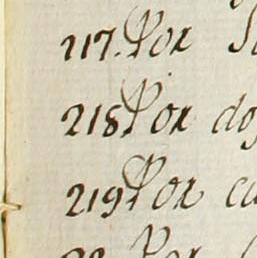 217. Por
218 Por do
219 Por cu
Por